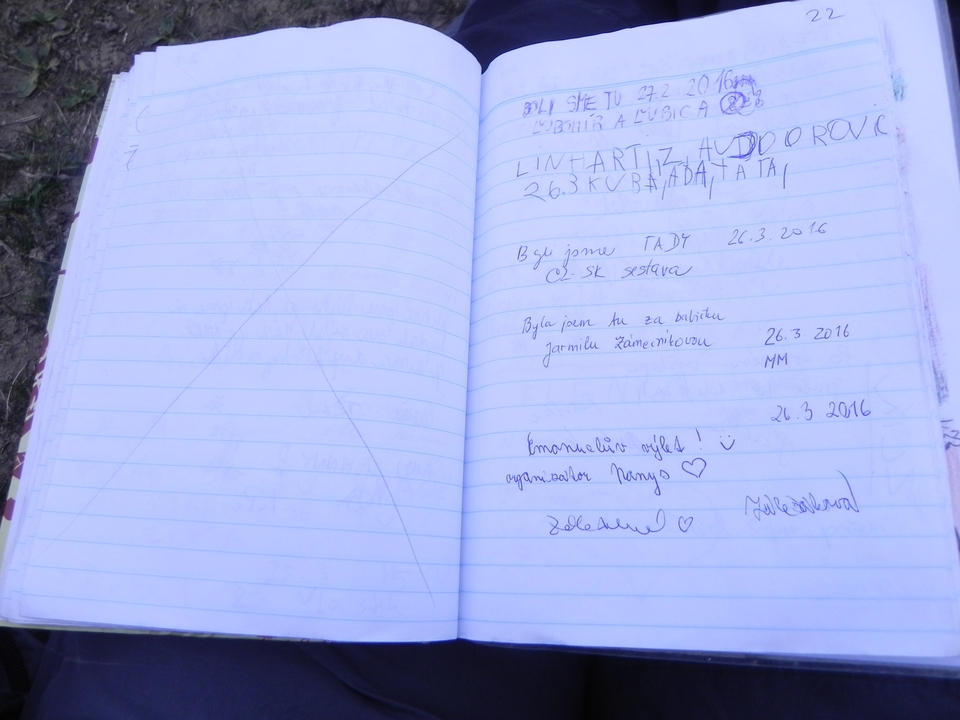 22
BOLI SME TU 27.2. 2016
ĽUBOMÍR A ĽUBICA
LINHARTI, Z HUDDOROVIC
26.3 KUBA, ADA, TATA,
Byli jsme TADY 26.3.2016
CZ-SK sestava
Byla jsem tu za babičku
Jarmilu Zámečnikovou 26.3 2016
MM
26.3 2016
Emanuelův výlet!
organizátor Nanys